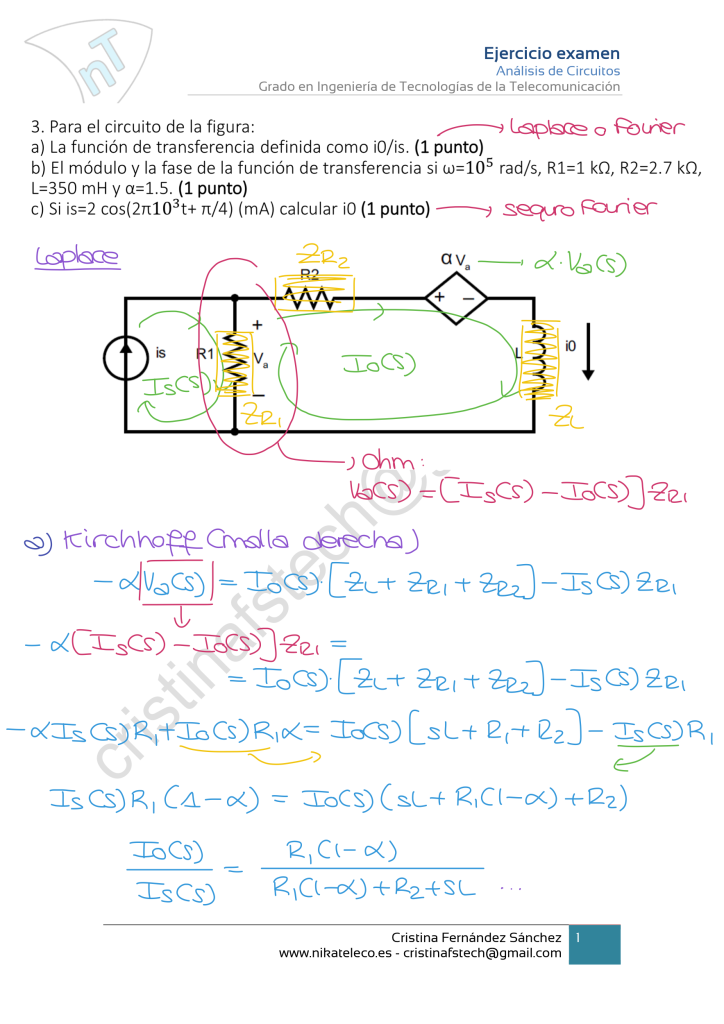 nT
Ejercicio examen
Análisis de Circuitos
Grado en Ingeniería de Tecnologías de la Telecomunicación
3. Para el circuito de la figura:
→ Laplace o Fourier
a) La función de transferencia definida como i0/is. (1 punto)
b) El módulo y la fase de la función de transferencia si ω=10⁵ rad/s, R1=1 kΩ, R2=2.7 kΩ,
L=350 mH y α=1.5. (1 punto)
c) Si is=2 cos(2π10³t+ π/4) (mA) calcular i0 (1 punto) → seguro Fourier
Laplace
Z_R2
R2
α Va → α·Va(s)
+ −
+
is
R1
Va
−
Is(s)
Z_R1
Io(s)
L
i0
Z_L
→ Ohm:
Va(s) = [Is(s) − Io(s)] Z_R1
a) Kirchhoff (malla derecha)
−α Va(s) = Io(s)·[Z_L + Z_R1 + Z_R2] − Is(s) Z_R1
−α [Is(s) − Io(s)] Z_R1 =
= Io(s)·[Z_L + Z_R1 + Z_R2] − Is(s) Z_R1
−α Is(s) R₁ + Io(s) R₁ α = Io(s) [sL + R₁ + R₂] − Is(s) R₁
Is(s) R₁ (1−α) = Io(s) (sL + R₁(1−α) + R₂)
Io(s)/Is(s) = R₁(1−α)/(R₁(1−α) + R₂ + sL) ...
cristinafstech@
Cristina Fernández Sánchez 1
www.nikateleco.es - cristinafstech@gmail.com